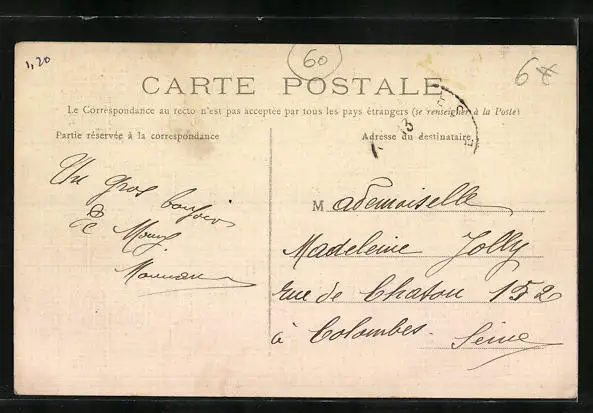 1,20
60
6*
CARTE POSTALE
Le Correspondance au recto n'est pas acceptée par tous les pays étrangers (se renseigner à la Poste)
Partie réservée à la correspondance
Adresse du destinataire
Un gros bonjour
de
Mademoiselle
Madeleine Jolly
rue de Chatou 152
à Colombes.
Seine